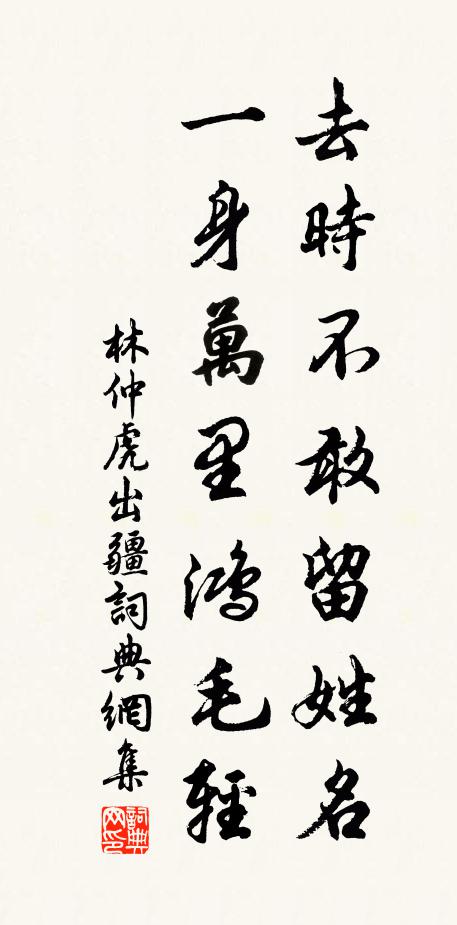 去時不敢留姓名
一身萬里鴻毛輕
林仲虎出疆詞典網集
詞典網印